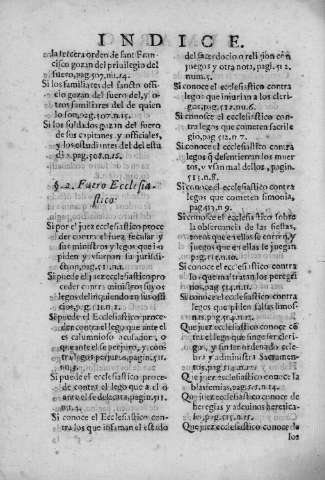 INDICE.
en la tercera orden de sant Fran-
cisco gozan del priuilegio del
fuero, pag.507.nu.14.
Si los familiares del sancto offi-
cio gozan del fuero del, y o-
tros familiares del de quien
lo son, pag.507.n.15.
Si los soldados gozan del fuero
de sus capitanes, y officiales,
y los estudiantes del del estu
dio, pag.508.n.15.
§.2. Fuero Ecclesia-
stico.
Si por el juez ecclesiastico proce
der contra el juez secular y
sus ministros y legos que im
piden y vsurpan su jurisdi-
ction, pag.511.n.1.
Si puede el juez ecclesiastico proce
der contra ministros suyos
legos delinquiendo en sus offi
cios, pag.511.n.2.
Si puede el Ecclesiastico proce-
der contra el lego que ante el
es calumnioso acusador, o
que ante el se perjura, y con-
tra legos perjuros, pagin.511.
nu.3.
Si puede el ecclesiastico proce-
der contra el lego que a el o
ante el se desacata, pag.511.
nu.4.
Si conoce el Ecclesiastico contra
los que infaman el estado
del sacerdocio o religion con
juegos y otra nota, pag.512.
num.5.
Si conoce el ecclesiastico contra
legos que injurian a los cleri-
gos, pag.512.nu.6.
Si conoce el ecclesiastico contra
legos que cometen sacrile
gio, pag.512.n.7.
Si conoce el ecclesiastico contra
legos q̃ desentierran los muer
tos, y vsan mal dellos, pagin.
513.n.8.
Si conoce el ecclesiastico contra
legos que cometen simonia,
pag.413.n.9.
Si conoce el ecclesiastico sobre
la obseruancia de las fiestas,
juegos que en ellas se juegan
pag.514.n.10.
Si conoce el ecclesiastico contra
lo que mal tratan los peregri
nos, pag.514.n.11.
Si conoce el ecclesiastico contra
legos que piden falsas limos-
nas, pag.514.n.11.
Que juez ecclesiastico conoce cõ
tra el lego que finge ser cleri-
go, y sin ser ordenado cele-
bra y administra Sacramen-
tos, pagin.514.n.12.
Que juez ecclesiastico conoce la
blasfemias, pag.515.n.14.
Que juez ecclesiastico conoce de
heregias y adeuinos heretica-
les, pag.515.n.15.
Que juez ecclesiastico conoce de
los